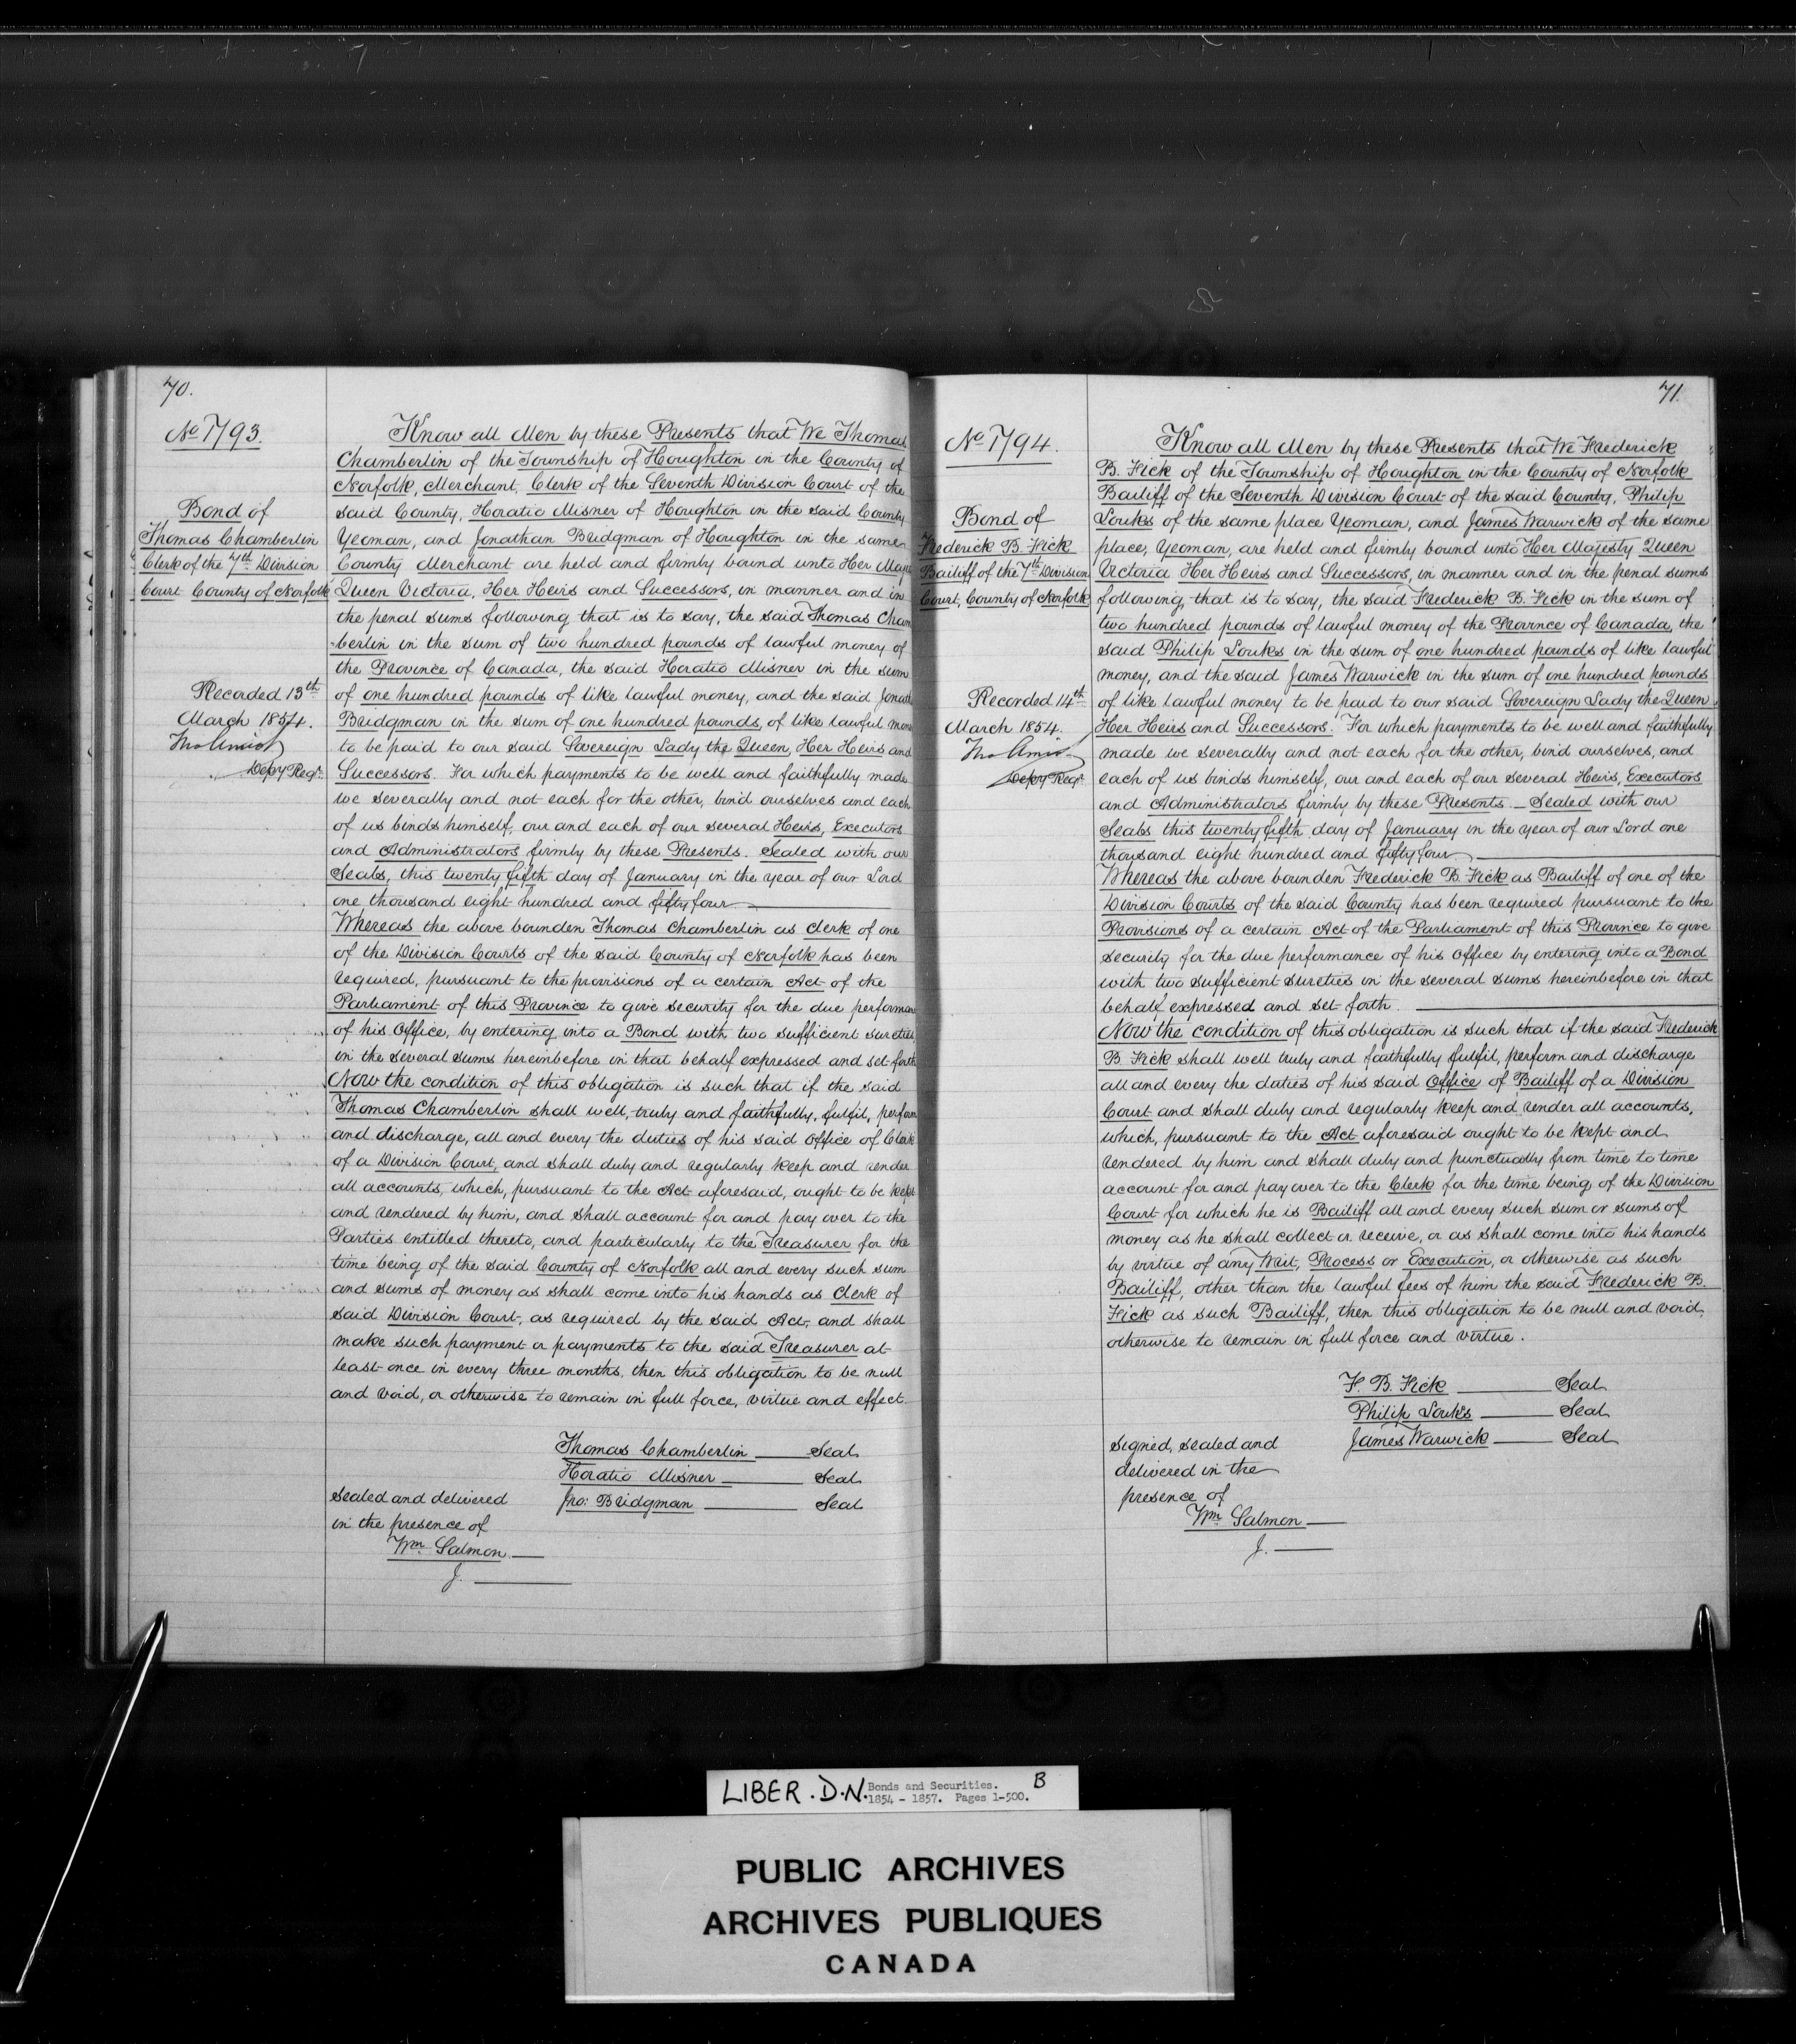 70.
No 1793.
Bond of
Thomas Chamberlin
Clerk of the 7th Division
Court County of Norfolk
Recorded 13th
March 1854.
Thos Amiot
Depy Regr.
Know all Men by these Presents that We Thomas
Chamberlin of the Township of Houghton in the County of
Norfolk, Merchant, Clerk of the Seventh Division Court of the
said County, Horatio Misner of Houghton in the said County
Yeoman, and Jonathan Bridgman of Houghton in the same
County Merchant are held and firmly bound unto Her Majes
Queen Victoria, Her Heirs and Successors, in manner and in
the penal sums following that is to say, the said Thomas Cham
-berlin in the sum of two hundred pounds of lawful money of
the Province of Canada, the said Horatio Misner in the sum
of one hundred pounds of like lawful money, and the said Jonath
Bridgman in the sum of one hundred pounds, of like lawful mone
to be paid to our said Sovereign Lady the Queen, Her Heirs and
Successors. For which payments to be well and faithfully made
we severally and not each for the other, bind ourselves and each
of us binds himself, our and each of our several Heirs, Executors
and Administrators firmly by these Presents. Sealed with our
Seals, this twenty fifth day of January in the year of our Lord
one thousand eight hundred and fifty four
Whereas the above bounden Thomas Chamberlin as Clerk of one
of the Division Courts of the said County of Norfolk has been
required, pursuant to the provisions of a certain Act of the
Parliament of this Province to give security for the due performan
of his Office, by entering into a Bond with two sufficient sureties,
in the several sums hereinbefore in that behalf expressed and set forth
Now the condition of this obligation is such that if the said
Thomas Chamberlin shall well, truly and faithfully, fulfil, perform
and discharge, all and every the duties of his said Office of Clerk
of a Division Court, and shall duly and regularly keep and render
all accounts, which, pursuant to the Act aforesaid, ought to be kept
and rendered by him, and shall account for and pay over to the
Parties entitled thereto, and particularly to the Treasurer for the
time being of the said County of Norfolk all and every such sum
and sums of money as shall come into his hands as Clerk of
said Division Court, as required by the said Act, and shall
make such payment or payments to the said Treasurer at
least once in every three months, then this obligation to be null
and void, or otherwise to remain in full force, virtue and effect.
Thomas Chamberlin Seal
Horatio Misner Seal
Jno: Bridgman Seal
Sealed and delivered
in the presence of
Wm Salmon
J.
71.
No 1794.
Bond of
Frederick B. Fick
Bailiff of the 7th Division
Court, County of Norfolk
Recorded 14th
March 1854.
Thos Amiot
Depy Regr.
Know all Men by these Presents that We Frederick
B. Fick of the Township of Houghton in the County of Norfolk
Bailiff of the Seventh Division Court of the said County, Philip
Loukes of the same place Yeoman, and James Warwick of the same
place, Yeoman, are held and firmly bound unto Her Majesty Queen
Victoria Her Heirs and Successors, in manner and in the penal sums
following, that is to say, the said Frederick B. Fick in the sum of
two hundred pounds of lawful money of the Province of Canada, the
said Philip Loukes in the sum of one hundred pounds of like lawful
money, and the said James Warwick in the sum of one hundred pounds
of like lawful money to be paid to our said Sovereign Lady the Queen,
Her Heirs and Successors. For which payments to be well and faithfully
made we severally and not each for the other, bind ourselves, and
each of us binds himself, our and each of our several Heirs, Executors
and Administrators firmly by these Presents. Sealed with our
Seals this twenty fifth day of January in the year of our Lord one
thousand eight hundred and fifty four
Whereas the above bounden Frederick B. Fick as Bailiff of one of the
Division Courts of the said County has been required pursuant to the
Provisions of a certain Act of the Parliament of this Province to give
security for the due performance of his Office by entering into a Bond
with two sufficient sureties in the several sums hereinbefore in that
behalf expressed and set forth.
Now the condition of this obligation is such that if the said Frederick
B. Fick shall well truly and faithfully fulfil, perform and discharge
all and every the duties of his said Office of Bailiff of a Division
Court and shall duly and regularly keep and render all accounts,
which, pursuant to the Act aforesaid ought to be kept and
rendered by him and shall duly and punctually from time to time
account for and pay over to the Clerk for the time being of the Division
Court for which he is Bailiff all and every such sum or sums of
money as he shall collect or receive, or as shall come into his hands
by virtue of any Writ, Process or Execution, or otherwise as such
Bailiff, other than the lawful fees of him the said Frederick B.
Fick as such Bailiff, then this obligation to be null and void,
otherwise to remain in full force and virtue.
F. B. Fick Seal
Philip Loukes Seal
James Warwick Seal
Signed, sealed and
delivered in the
presence of
Wm Salmon
J.
LIBER. D.N. Bonds and Securities. B
1854 - 1857. Pages 1-500.
PUBLIC ARCHIVES
ARCHIVES PUBLIQUES
CANADA